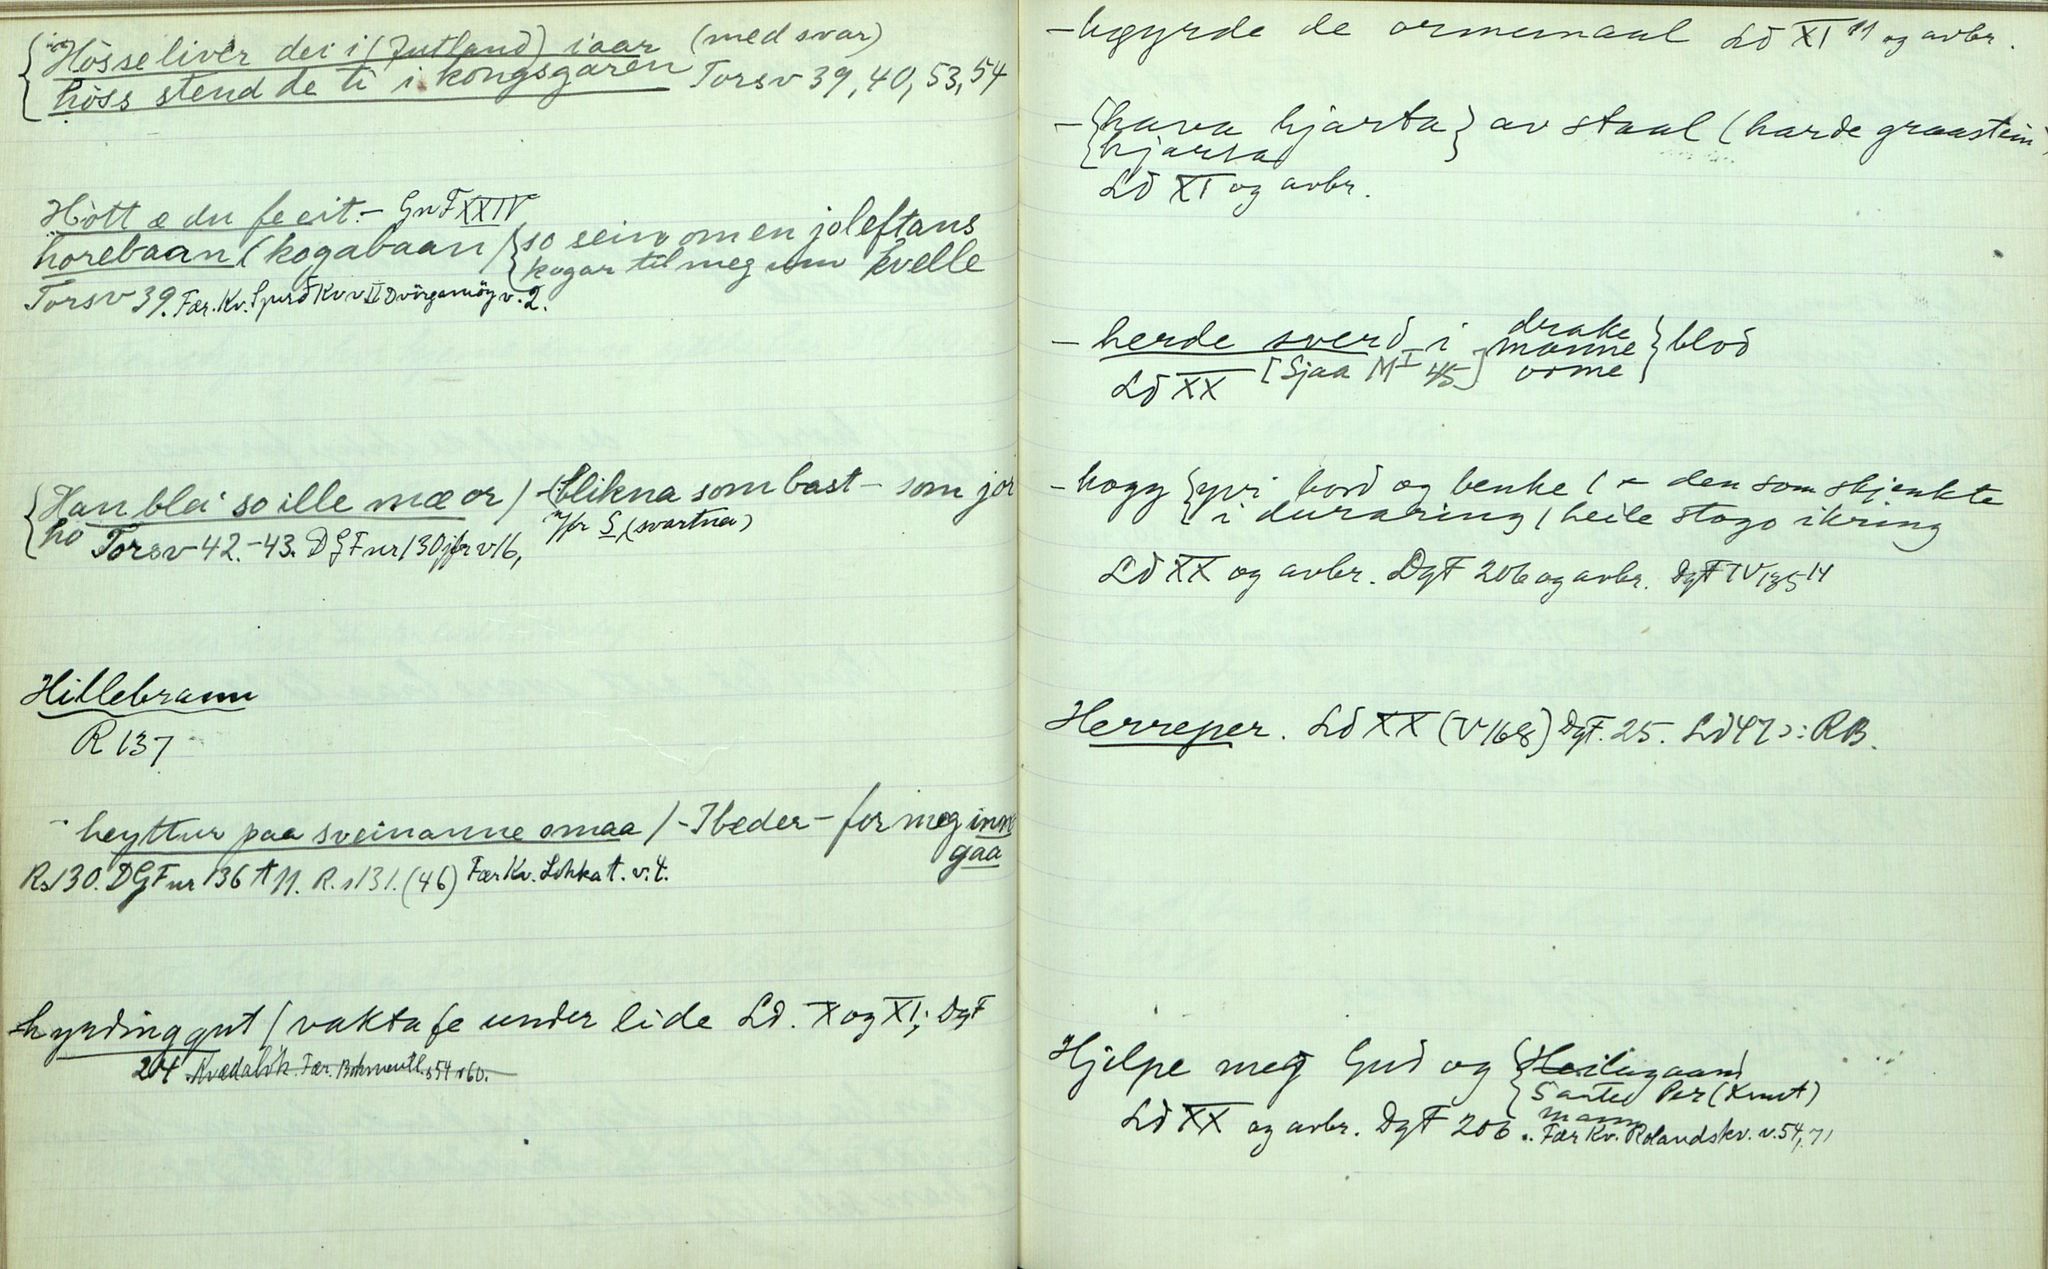 Hòsse liver dei i (Jutland) i aar (med svar)
hòss stend de ti i kongsgaren Torsv 39, 40, 53, 54
Hòtt æ du fe eit. – GnF XXIV
horebaan (kogabaan / so sein om en joleftans
kogar til meg um kvelle
Torsv 39. Fær. Kv. Kvv II Dvörgamöy v. 2.
Han blei so ille mæ or / – (blikna som bast – som jor
ho Torsv 42.–43. DGF nr 130 jfr v 16, jfr S (svartna)
Hillebrann
R 137
heyttur paa sveinanne smaa / – I beder – for meg inn
gaa
Rs 130. DGF nr 136 A 11. R. s 131. (46) Fær Kv. Lokka t. v. 4.
hyrdinggut / vakta fe under lide Ld. X og XI; DgF
204. Kvædabók. Fær. s 54 v 60.
– hgyrde de ormemaal Ld XI 11 og avbr.
– hava hjarta av staal (harde graastein)
hjarsa
Ld XI og avbr.
– herde sverd i drake blod
manne
orme
Ld XX [Sjaa M I 45]
– hogg yvi bord og benke ( – den som skjenkte
i duraring / heile stogo ikring
Ld XX og avbr. DgF 206 og avbr. DgF IV 185 14
Herreper. Ld XX (V 168) DgF. 25. Ld 47 ɔ: RB.
Hjelpe meg Gud og Heilagaand
Sante Per (Knut)
mann
Ld XX og avbr. DgF 206. Fær Kv. Rolandskv. v. 54, 71